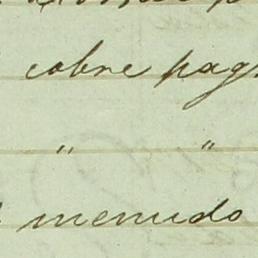 cobre pag
" "
menudo